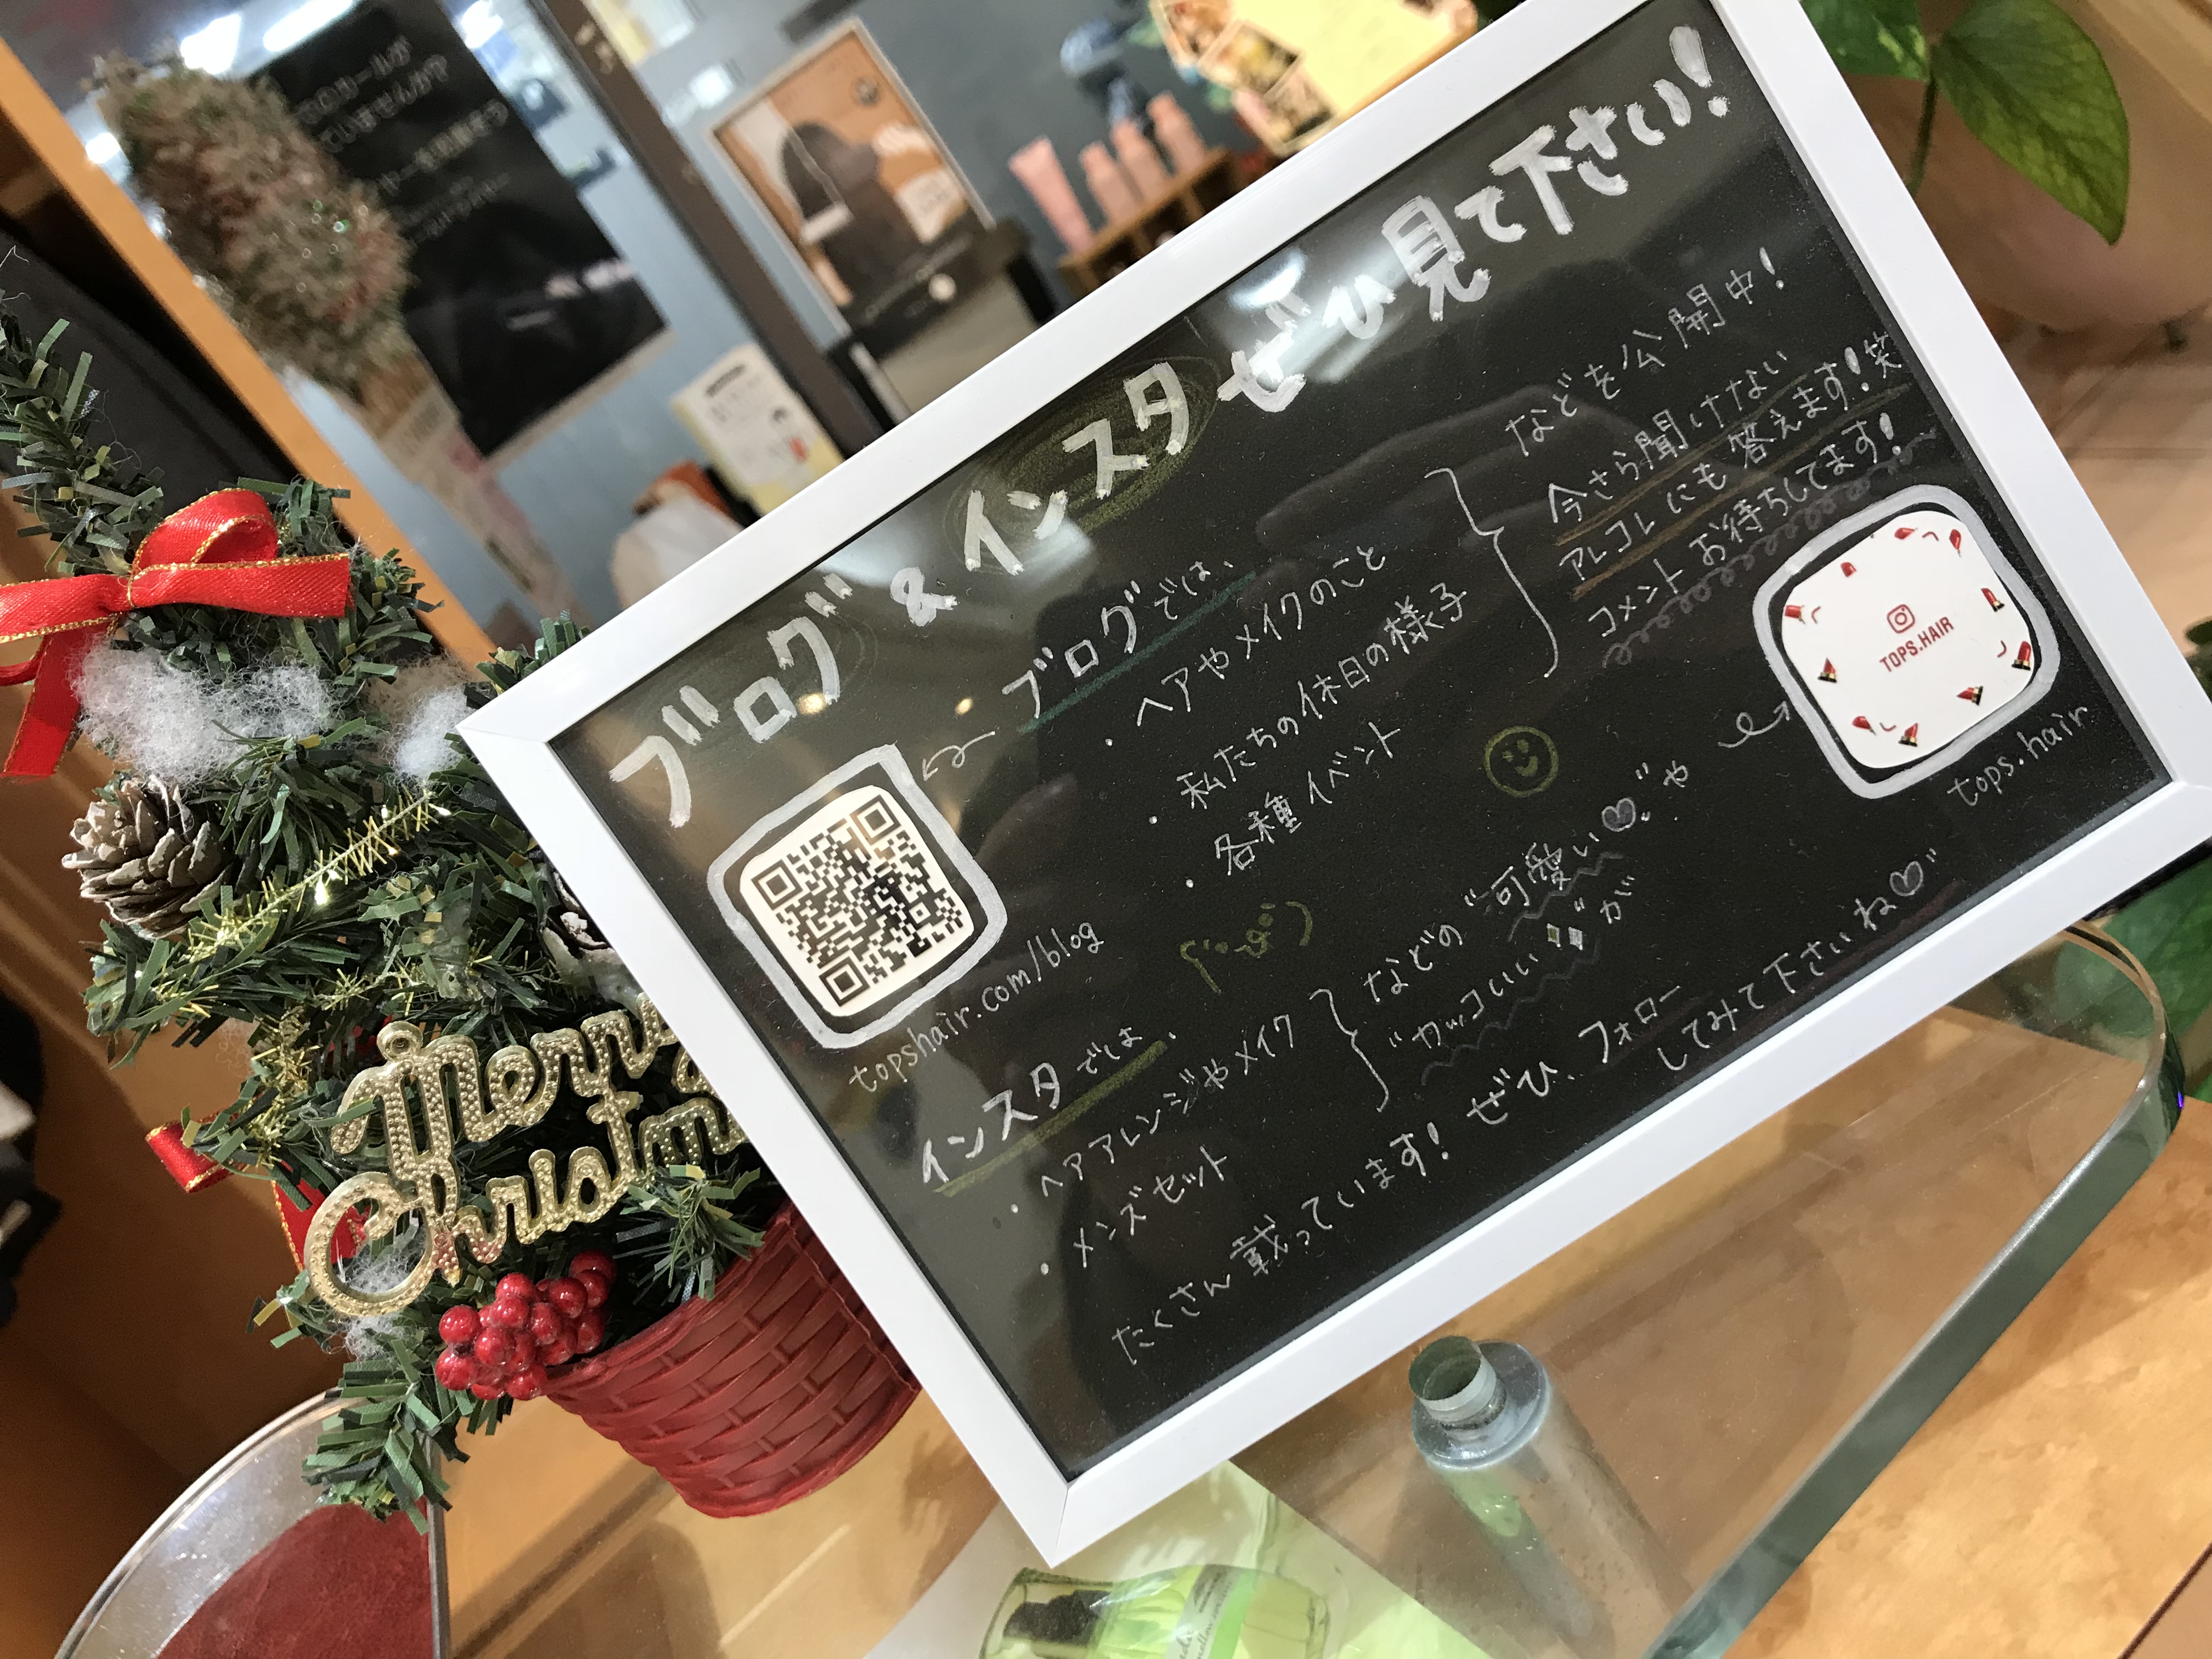 ブログ & インスタ ぜひ見て下さい!
ブログでは、
・ヘアやメイクのこと
・私たちの休日の様子
・各種イベント
などを公開中!
今さら聞けない
アレコレにも答えます!笑
コメントお待ちしてます!
topshair.com/blog
TOPS.HAIR
tops.hair
インスタでは、
・ヘアアレンジやメイク
・メンズセット
などの "可愛い♡" や
"カッコいい" が
たくさん載っています! ぜひ、フォロー
してみて下さいね♡
Merry
Christmas